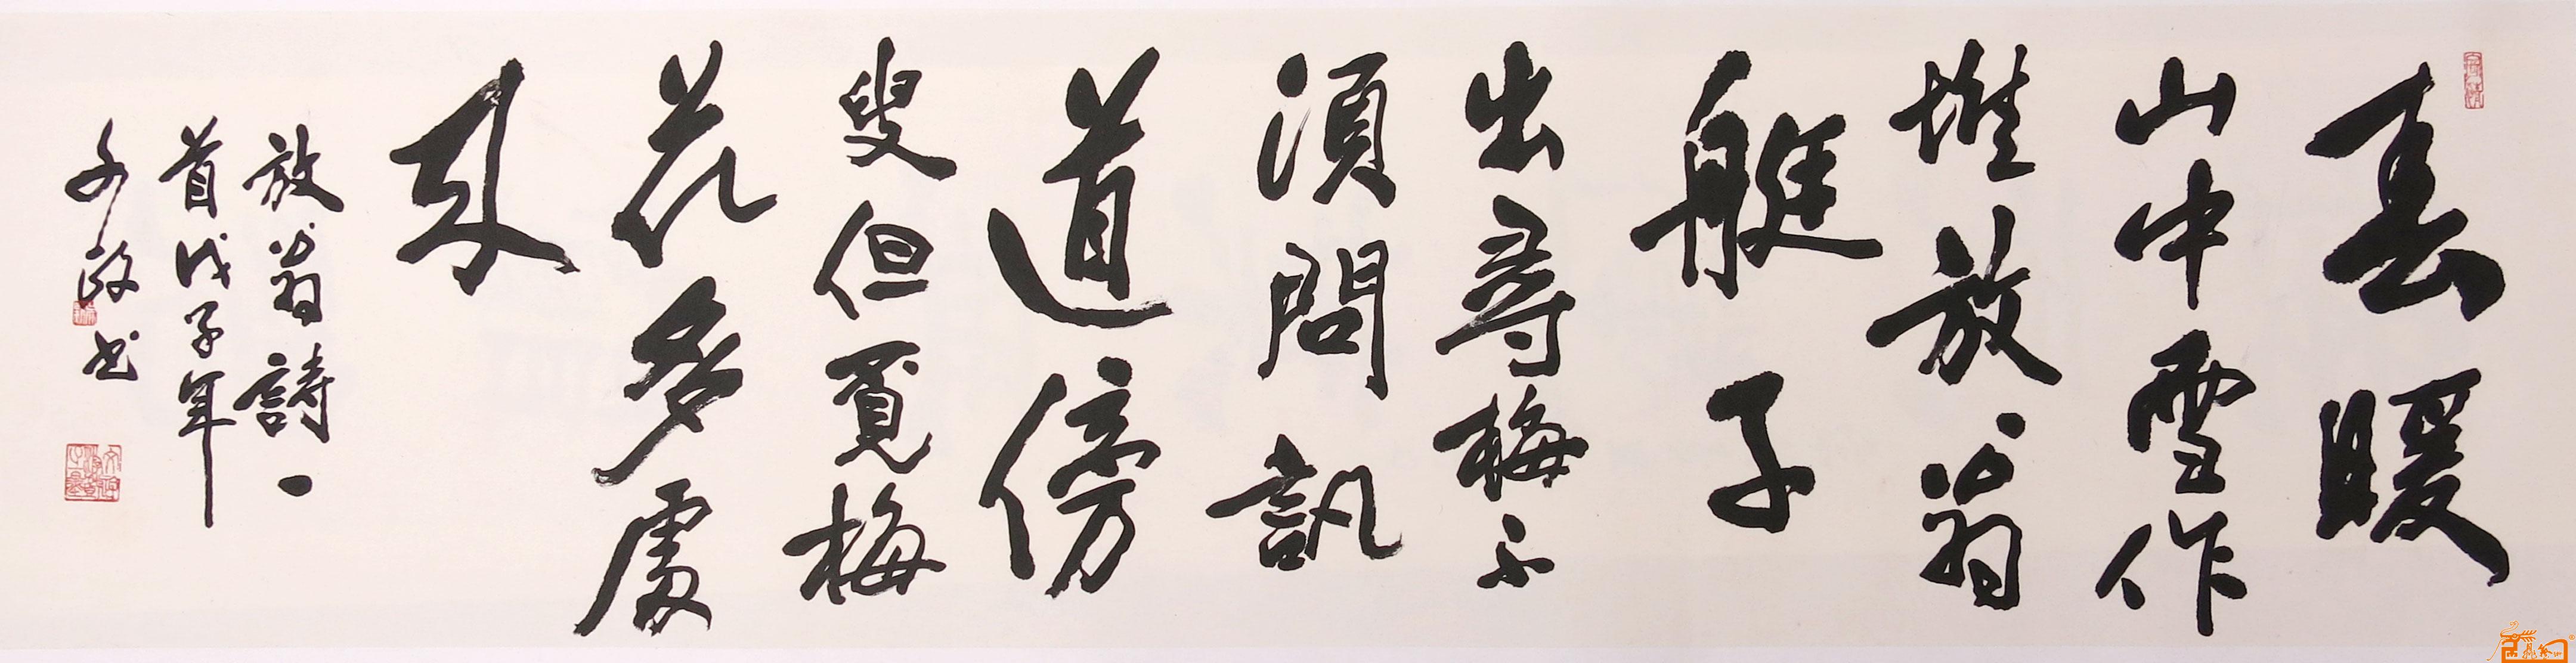 春暖
山中雪作
堆放翁
艇子
出尋梅不
須問訊
道傍
叟但覓梅
花多處
来
放翁詩一
首戊子年
政书